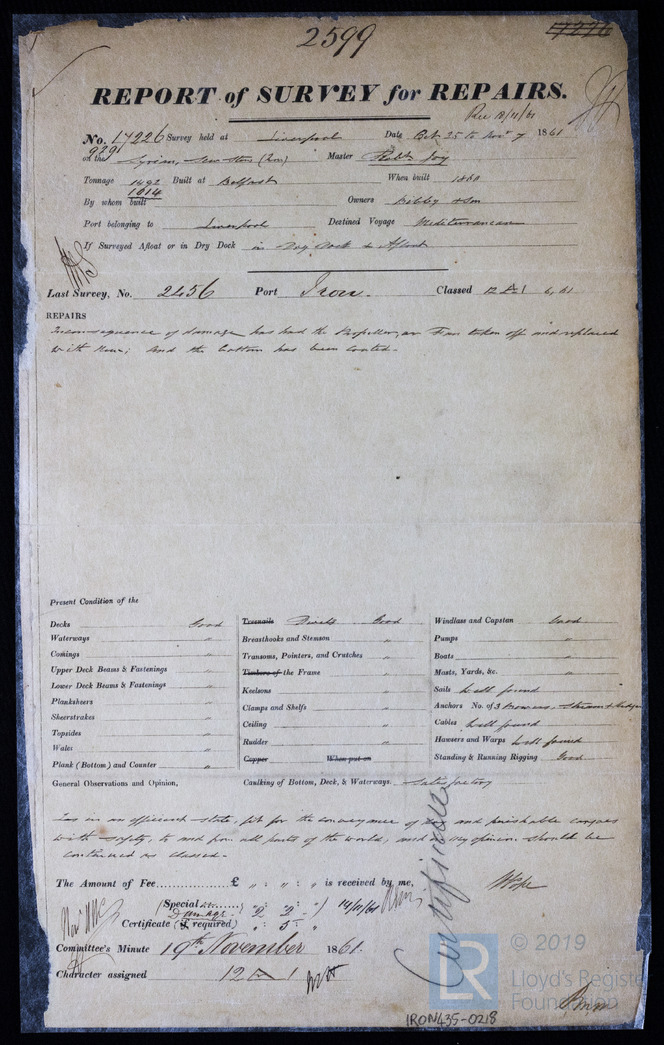 2599
REPORT of SURVEY for REPAIRS.
Rec 18/11/61
No. 17226 Survey held at Liverpool Date Oct 25 to Novr 7 1861
929 on the Syrian, Screw Stmr (Iron) Master Robt Joy
Tonnage 1492 Built at Belfast When built 1860
1014
By whom built Owners Bibby & Son
Port belonging to Liverpool Destined Voyage Mediterranean
If Surveyed Afloat or in Dry Dock in Dry Dock & Afloat
Last Survey, No. 2456 Port Iron. Classed 12 A 1 6, 61
REPAIRS
In consequence of damage has had the Propeller, or Fan taken off and replaced
with new; and the bottom has been coated.
Present Condition of the
Decks Good
Waterways "
Comings "
Upper Deck Beams & Fastenings "
Lower Deck Beams & Fastenings "
Planksheers "
Sheerstrakes "
Topsides "
Wales "
Plank (Bottom) and Counter "
Treenails Rivets Good
Breasthooks and Stemson "
Transoms, Pointers, and Crutches "
Timbers of the Frame "
Keelsons "
Clamps and Shelfs "
Ceiling "
Rudder "
Copper When put on
Windlass and Capstan Good
Pumps "
Boats "
Masts, Yards, &c. "
Sails Well found
Anchors No. of 3 Bowers, Stream & Kedges
Cables Well found
Hawsers and Warps Well found
Standing & Running Rigging Good
General Observations and Opinion, Caulking of Bottom, Deck, & Waterways. Satisfactory
Is in an efficient state, fit for the conveyance of dry and perishable cargoes
with safety, to and from all parts of the world, and in my opinion should be
continued as classed.
The Amount of Fee £ " : " : " is received by me,
Special
Damage " 2 : 2 : " 14/11/61
Certificate (if required) " : 5 : "
Certificate
Committee's Minute 19th November 1861.
Character assigned 12 A 1
© 2019
LR
Lloyd's Register
Foundation
IRON435-0218